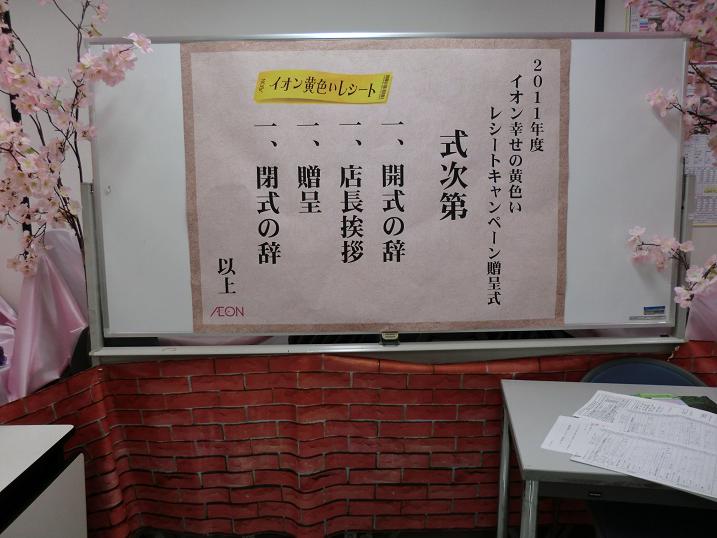 2011年度
イオン幸せの黄色い
レシートキャンペーン贈呈式
式次第
一、開式の辞
一、店長挨拶
一、贈呈
一、閉式の辞
以上
イオン黄色いレシート
ÆON